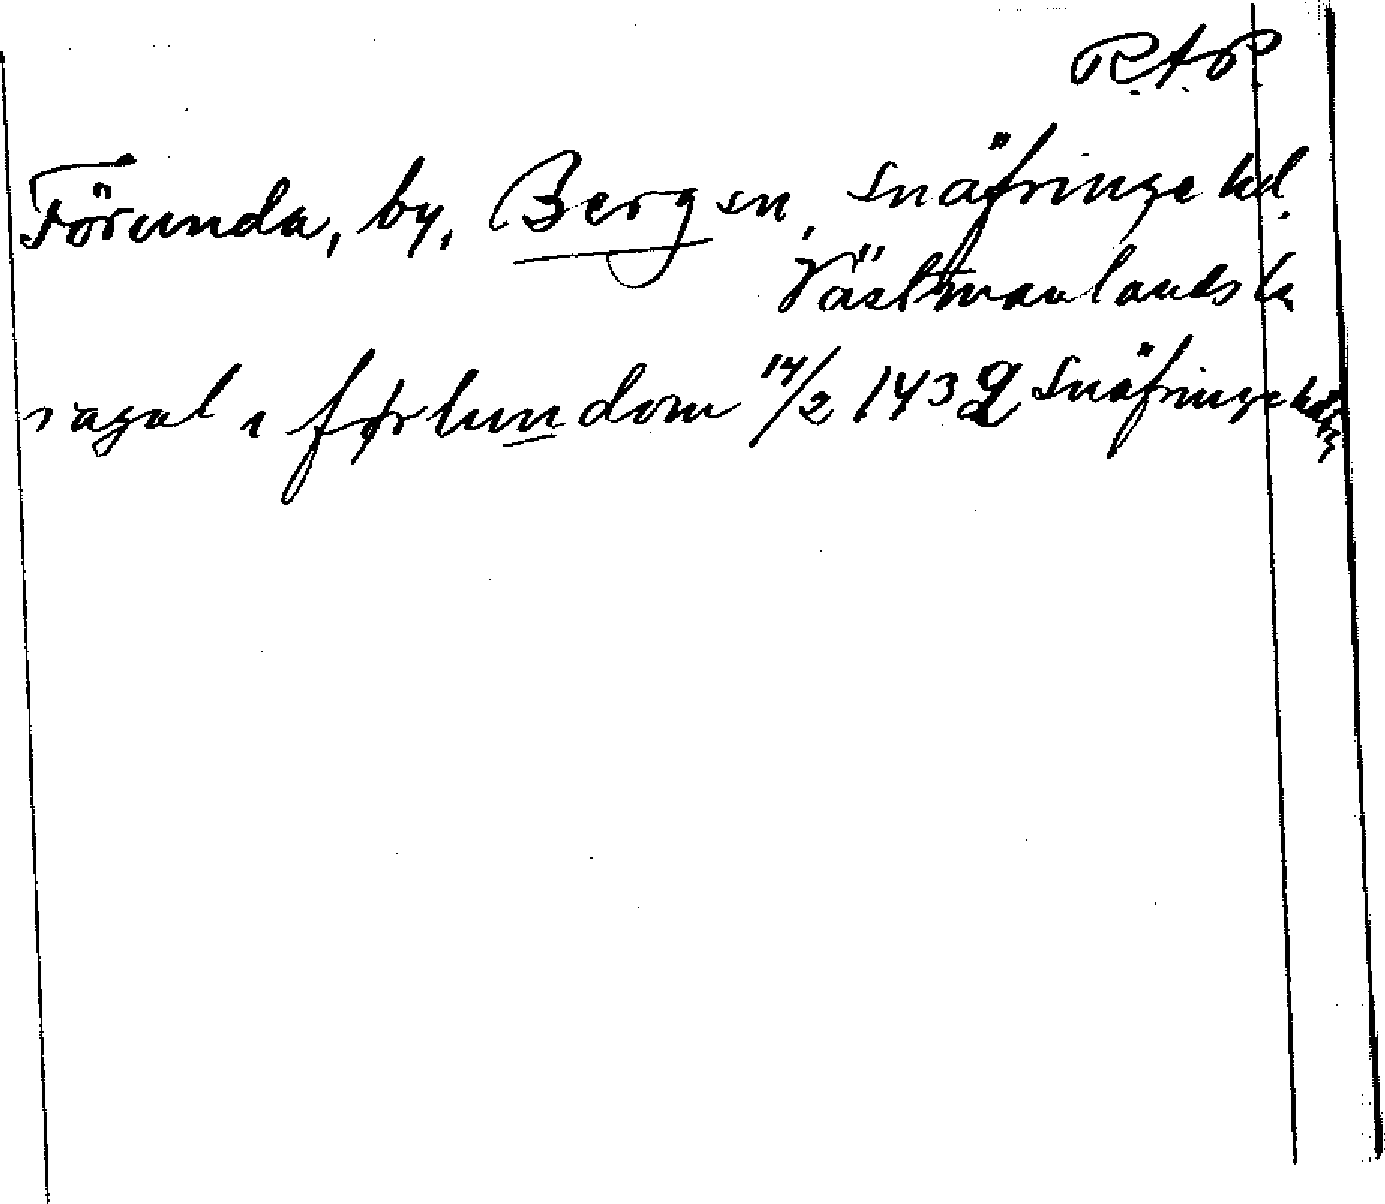 R.A.P.
Förunda, by, Berg sn, Snäfringe hd.
Västmanlands l
i førlun dom 14/2 1432 Snäfringe